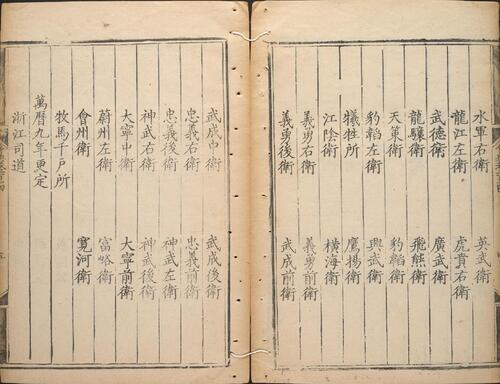 水軍右衛 英武衛
龍江左衛 虎賁右衛
武德衛 廣武衛
龍驤衛 飛熊衛
天策衛 豹韜衛
豹韜左衛 興武衛
犧牲所 鷹揚衛
江陰衛 橫海衛
義勇右衛 義勇前衛
義勇後衛 武成前衛
武成中衛 武成後衛
忠義右衛 忠義前衛
忠義後衛 神武左衛
神武右衛 神武後衛
大寧中衛 大寧前衛
蔚州左衛 富峪衛
會州衛 寬河衛
牧馬千戶所
萬曆九年更定
浙江司道